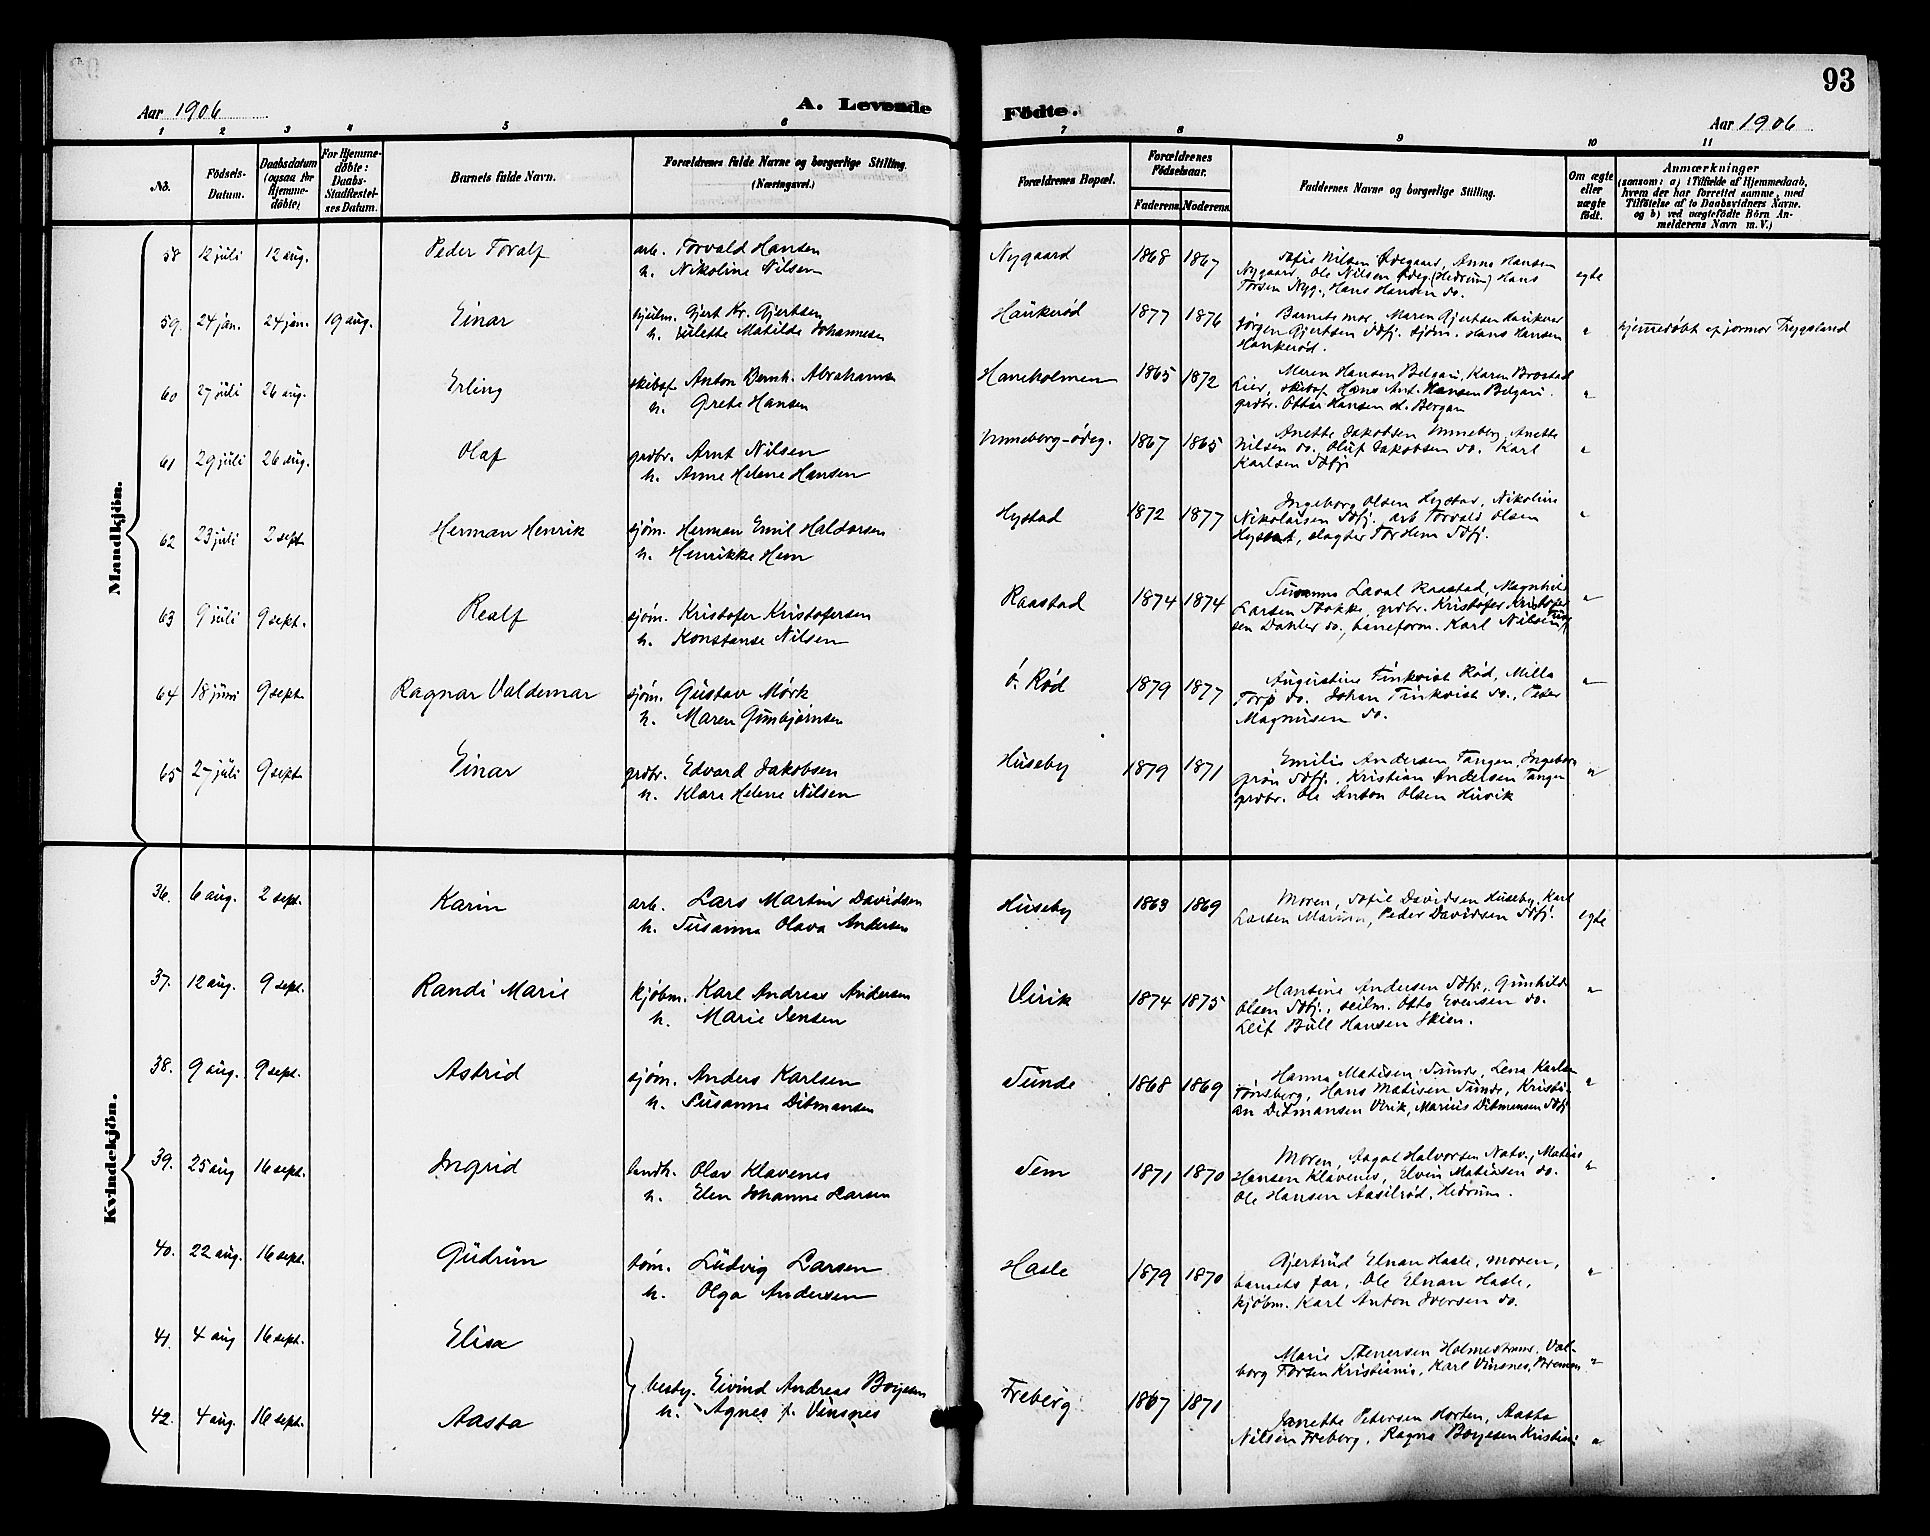 93
Aar 1906 A. Levende Födte. Aar 1906
1 2 3 4 5 6 7 8 9 10 11
No.
Födsels-
Datum.
Daabsdatum
(ogsaa for
Hjemme-
döbte)
For Hjemme-
döbte:
Daabs-
Stadfæstel-
ses Datum.
Barnets fulde Navn.
Forældrenes fulde Navne og borgerlige Stilling.
(Næringsvei.)
Forældrenes Bopæl.
Forældrenes
Födselsaar.
Faderens Moderens
Faddernes Navne og borgerlige Stilling.
Om ægte
eller
uægte
födt.
Anmærkninger
(saasom: a) i Tilfælde af Hjemmedaab,
hvem der har forrettet samme, med
Tilföielse af to Daabsvidners Navne.
og b) ved uægtefödte Börn An-
melderens Navn m. V.)
Mandkjön.
58 12 juli 12 aug. Peder Toralf
arb. Torvald Hansen
h. Nikoline Nilsen
Nygaard 1868 1867
Sofie Nilsen Ødegaard, Anne Hansen
Nygaard, Ole Nilsen Ødeg. (Hedrum) Hans
Torsen Nyg., Hans Hansen do.
egte
59. 24 jan. 24 jan. 19 aug. Einar
hjulm. Gjert Kr. Gjertsen
h. Julette Matilde Johannesen
Haukerød 1877 1876
Barnets mor, Maren Gjertsen Haukerød
Jørgen Gjertsen Sdfj. sjøm. Hans Hansen
Haukerød.
"
hjemmedøbt af jormor Trygsland
60 27 juli 26 aug. Erling
skibsf. Anton Bernh. Abrahamsen
h. Grete Hansen
Haneholmen 1865 1872
Maren Hansen Belgau, Karen Brostad
Lier, skibsf. Hans Ant. Hansen Belgau.
grdbr. Ottar Hansen st. Bergan
"
61 29 juli 26 aug. Olaf
grdbr. Arnt Nilsen
h. Anne Helene Hansen
Unneberg-ødeg. 1867 1865
Anette Jakobsen Unneberg, Anette
Nilsen do. Oluf Jakobsen do. Karl
Karlsen Sdfj.
"
62 23 juli 2 sept. Herman Henrik
sjøm. Herman Emil Haldorsen
h. Henrikke Hem
Hystad 1872 1877
Ingeborg Olsen Hystad, Nikoline
Nikolaisen Sdfj. arb Torvald Olsen
Hystad, slagter Tor Hem Sdfj.
"
63 9 juli 9 sept. Realf
sjøm. Kristofer Kristofersen
h. Konstanse Nilsen
Raastad 1874 1874
Susanne Laval Raastad, Magnhild
Larsen Stokke, grdbr. Kristofer Kristofer
sen Dahler do., baneform. Karl Nilsen
"
64 18 juni 9 sept. Ragnar Valdemar
sjøm. Gustav Mørk
h. Maren Gunbjørnsen
ö. Rød 1879 1877
Augustine Finkvist Rød, Milla
Torp do. Johan Finkvist do., Peder
Magnusen do.
"
65 27 juli 9 sept. Einar
grdbr. Edvard Jakobsen
h. Klara Helene Nilsen
Huseby 1879 1871
Emilie Andersen Tangen, Ingeborg
Grøn Sdfj., Kristian Andersen Tangen
grdbr. Ole Anton Olsen Husvik
"
Kvindekjön.
36. 6 aug. 2 sept. Karin
arb. Lars Martin Davidsen
h. Susanne Olava Andersen
Huseby 1863 1869
Moren, Sofie Davidsen Huseby, Karl
Larsen Marum, Peder Davidsen Sdfj.
egte
37. 12 aug. 9 sept. Randi Marie
kjøbm. Karl Andreas Andersen
h. Marie Jensen
Virik 1874 1875
Hansine Andersen Sdfj., Gunhild
Olsen Sdfj., seilm. Otto Evensen do.
Leif Bull Hansen Skien.
"
38. 9 aug. 9 sept. Astrid
sjøm. Anders Karlsen
h. Susanne Ditmansen
Sunde 1868 1869
Hanna Matisen Sunde, Lena Karlsen
Tønsberg, Hans Matisen Sunde, Kristi-
an Ditmansen Virik, Marius Ditmansen Sdfj
"
39. 25 aug 16 sept. Ingrid
landh. Olav Klavenes
h. Elen Johanne Larsen
Sem 1871 1870
Moren, Aagot Halvorsen Natv., Matias
Hansen Klavenes, Elvin Matissen do.
Ole Hansen Aasilrød, Hedrum.
"
40. 22 aug. 16 sept. Gudrun
tøm. Ludvig Larsen
h. Olga Andersen
Hasle 1879 1870
Gjertrud Elnan Hasle, moren,
barnets far, Ole Elnan Hasle,
kjøbm. Karl Anton Iversen do.
"
41. 4 aug 16 sept. Elisa
Marie Stenersen Holmestrand, Val-
borg Torsen Kristiania, Karl Vinsnes, Bremen
"
besty. Eivind Andreas Boyesen
h. Agnes f. Vinsnes
Freberg 1867 1871
42. 4 aug. 16 sept. Aasta
Janette Petersen Horten, Aasta
Nilsen Freberg, Ragna Boyesen Kristiania
"